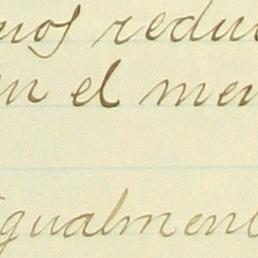 mos redu
en el men
igualmen